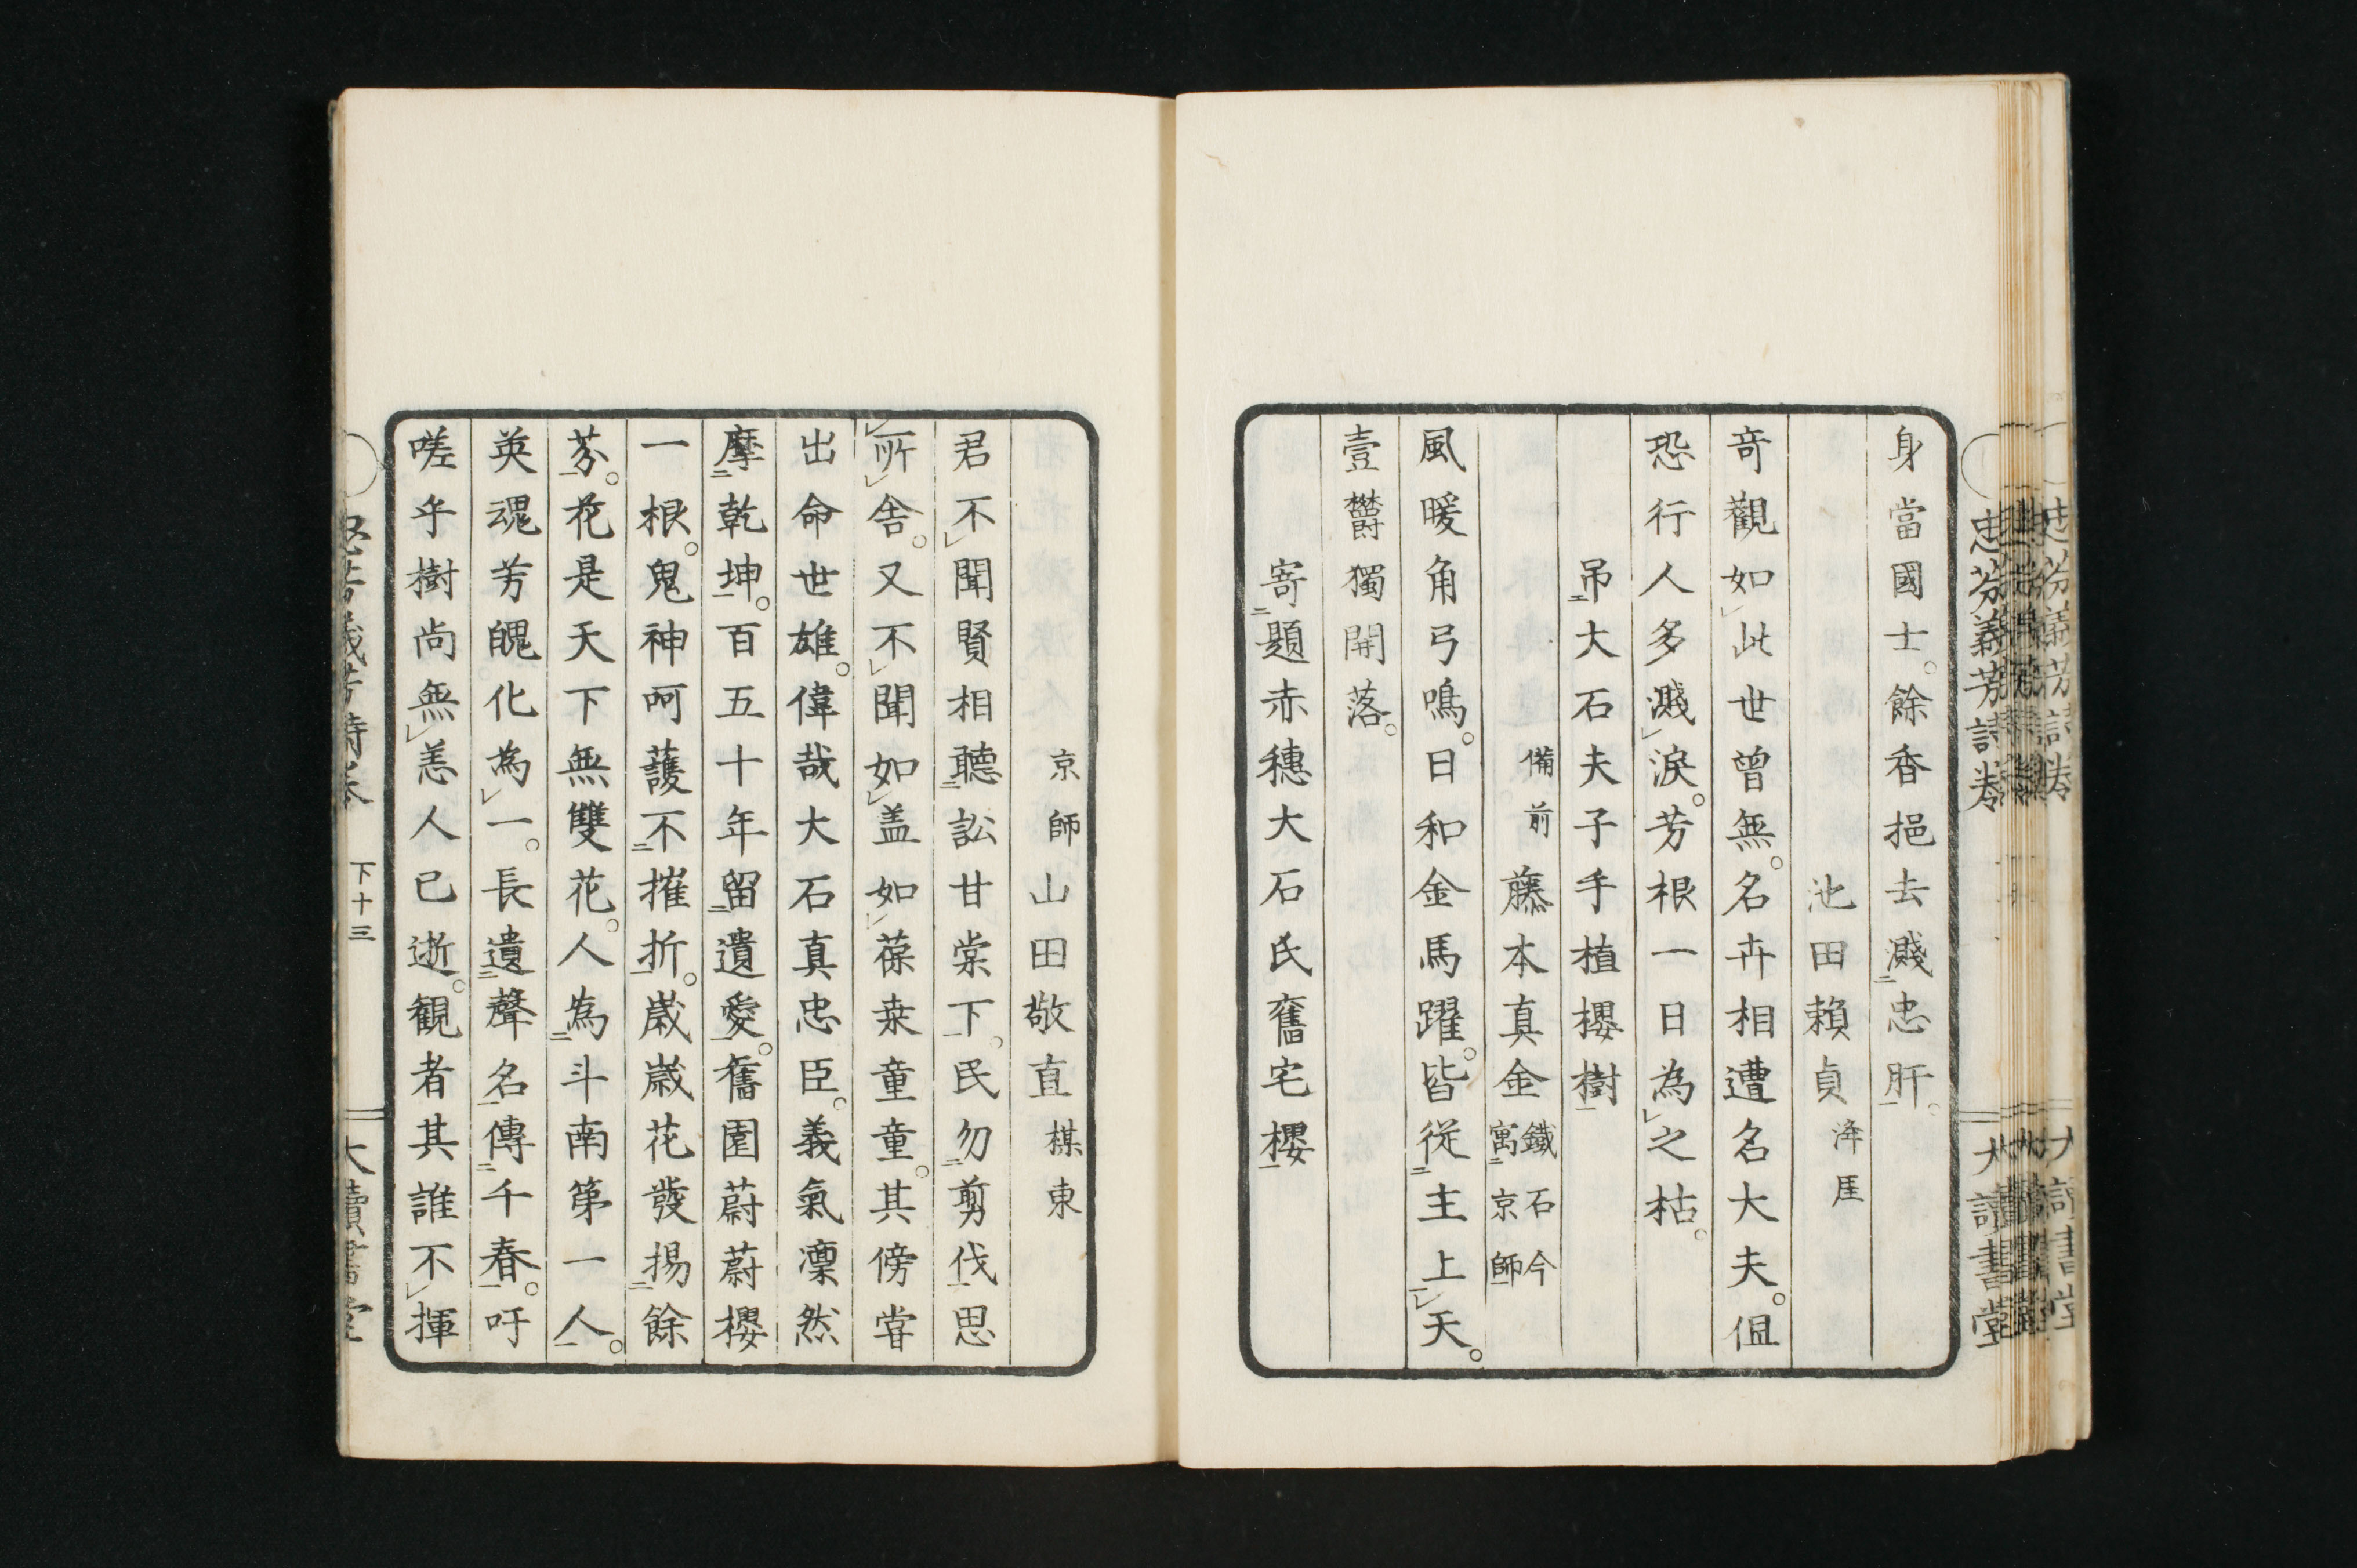 身當國士。餘香挹去濺忠肝。
池田賴貞 浲厓
奇觀如此世曾無。名卉相遭名大夫。但
恐行人多濺淚。芳根一日為之枯。
吊大石夫子手植櫻樹
備前 藤本真金 鐵石今寓京師
風暖角弓鳴。日和金馬躍。皆從主上天。
壹鬱獨開落。
寄題赤穗大石氏舊宅櫻
京師 山田敬直 楳東
君不聞賢相聽訟甘棠下。民勿剪伐思
所舍。又不聞如盖如葆桒童童。其傍甞
出命世雄。偉哉大石真忠臣。義氣凜然
摩乾坤。百五十年留遺愛。舊園蔚蔚櫻
一根。鬼神呵護不摧折。歲歲花發揚餘
芬。花是天下無雙花。人為斗南第一人。
英魂芳魄化為一。長遺聲名傳千春。吁
嗟乎樹尚無恙人已逝。觀者其誰不揮
忠芬義芳詩卷 下十三 大讀書堂